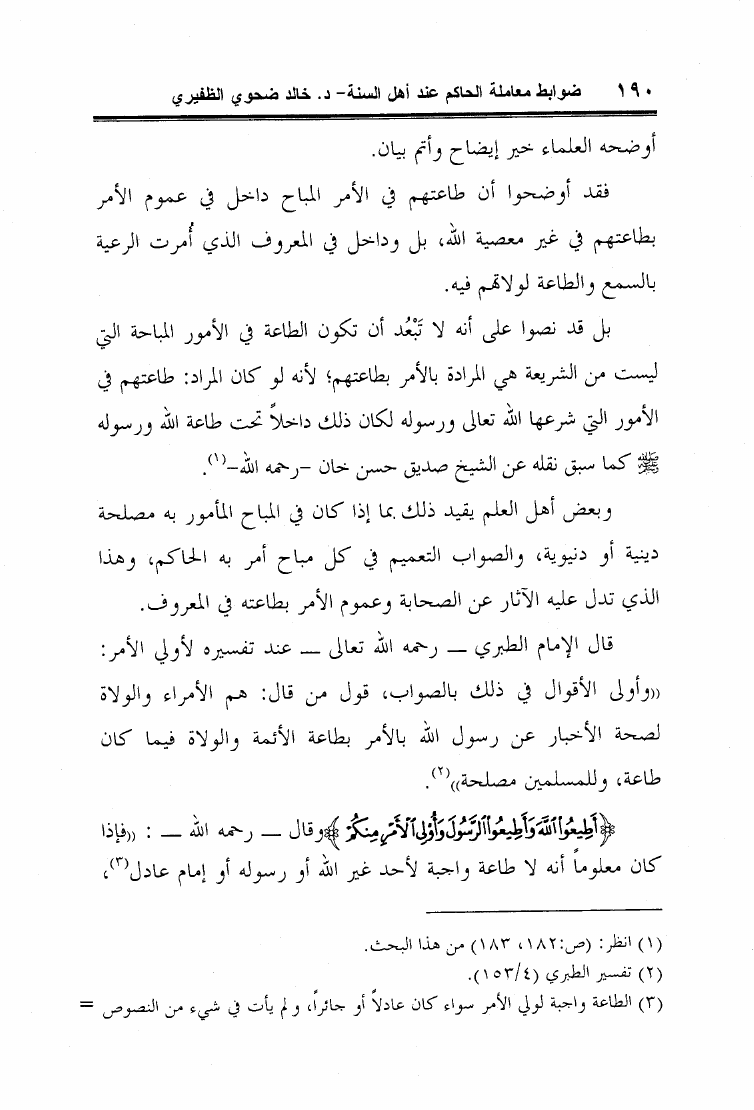 ١٩٠ ضوابط معاملة الحاكم عند أهل السنة- د. خالد ضحوي الظفيري
أوضحه العلماء خير إيضاح وأتم بيان.
فقد أوضحوا أن طاعتهم في الأمر المباح داخل في عموم الأمر
بطاعتهم في غير معصية الله، بل وداخل في المعروف الذي أُمرت الرعية
بالسمع والطاعة لولاتهم فيه.
بل قد نصوا على أنه لا تَبْعُد أن تكون الطاعة في الأمور المباحة التي
ليست من الشريعة هي المرادة بالأمر بطاعتهم؛ لأنه لو كان المراد: طاعتهم في
الأمور التي شرعها الله تعالى ورسوله لكان ذلك داخلاً تحت طاعة الله ورسوله
ﷺ كما سبق نقله عن الشيخ صديق حسن خان -رحمه الله-(١).
وبعض أهل العلم يقيد ذلك بما إذا كان في المباح المأمور به مصلحة
دينية أو دنيوية، والصواب التعميم في كل مباح أمر به الحاكم، وهذا
الذي تدل عليه الآثار عن الصحابة وعموم الأمر بطاعته في المعروف.
قال الإمام الطبري — رحمه الله تعالى — عند تفسيره لأولي الأمر:
((وأولى الأقوال في ذلك بالصواب، قول من قال: هم الأمراء والولاة
لصحة الأخبار عن رسول الله بالأمر بطاعة الأئمة والولاة فيما كان
طاعة، وللمسلمين مصلحة))(٢).
﴿أَطِيعُوا۟ ٱللَّهَ وَأَطِيعُوا۟ ٱلرَّسُولَ وَأُو۟لِى ٱلْأَمْرِ مِنكُمْ﴾ وقال — رحمه الله — : ((فإذا
كان معلوماً أنه لا طاعة واجبة لأحد غير الله أو رسوله أو إمام عادل(٣)،
(١) انظر: (ص:١٨٢، ١٨٣) من هذا البحث.
(٢) تفسير الطبري (١٥٣/٤).
(٣) الطاعة واجبة لولي الأمر سواء كان عادلاً أو جائراً، ولم يأت في شيء من النصوص =